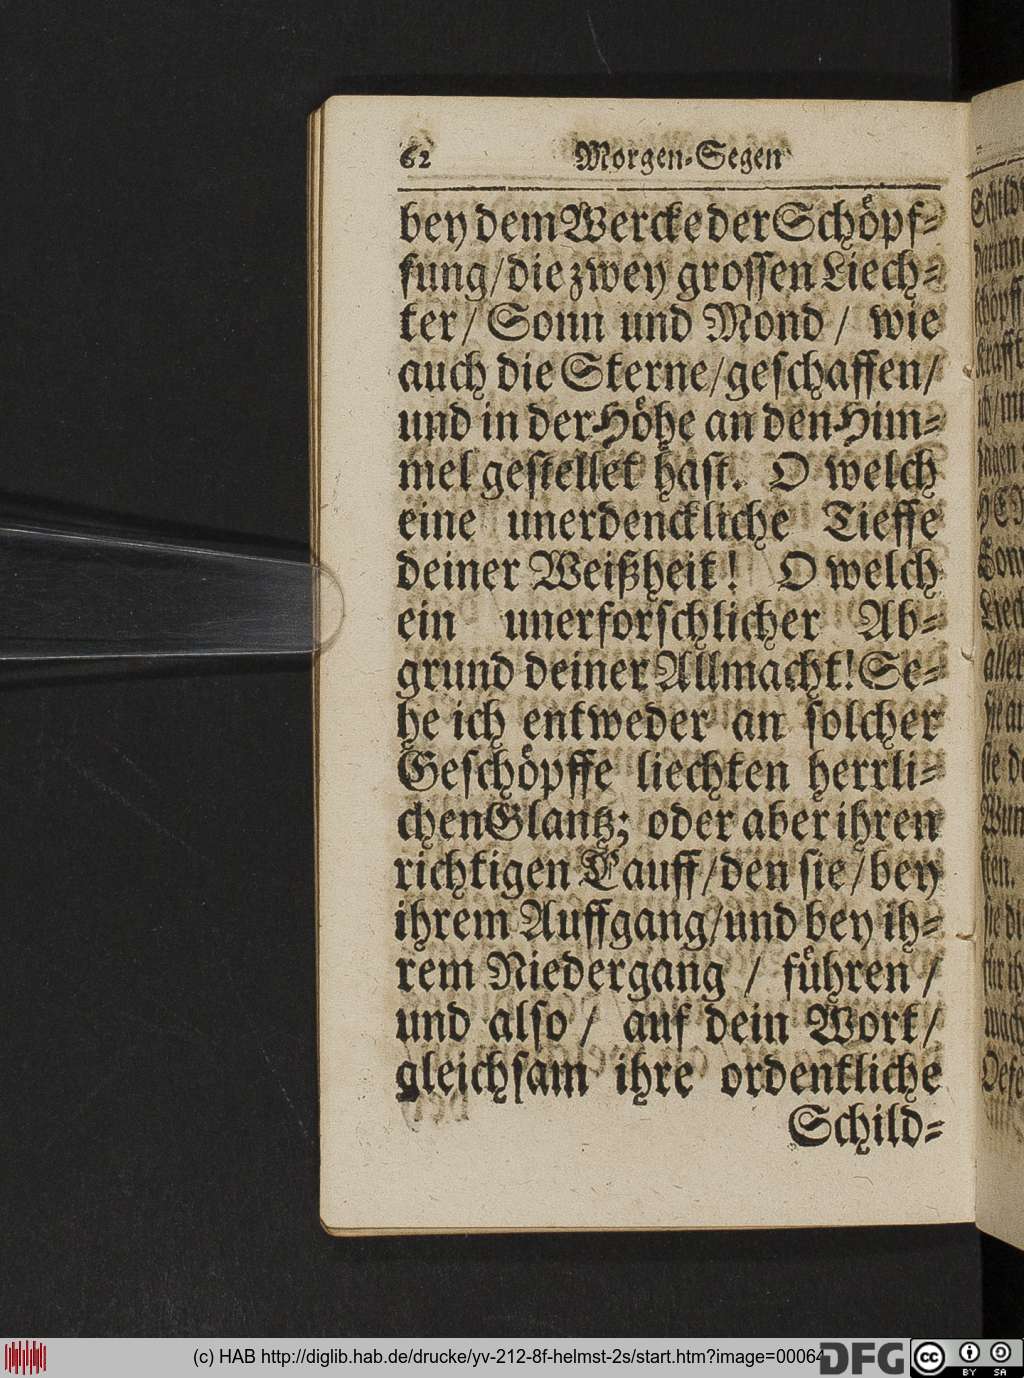 62 Morgen-Segen
bey dem Wercke der Schöpf-
fung/ die zwey groſſen Liech-
ter/ Sonn und Mond/ wie
auch die Sterne/ geſchaffen/
und in der Höhe an den Him-
mel geſtellet haſt. O welch
eine unerdenckliche Tieffe
deiner Weißheit! O welch
ein unerforſchlicher Ab-
grund deiner Allmacht! Se-
he ich entweder an ſolcher
Geſchöpffe liechten herrli-
chen Glantz; oder aber ihren
richtigen Lauff/ den ſie/ bey
ihrem Auffgang/ und bey ih-
rem Niedergang / führen/
und alſo/ auf dein Wort/
gleichſam ihre ordentliche
Schild-
(c) HAB http://diglib.hab.de/drucke/yv-212-8f-helmst-2s/start.htm?image=00064
DFG
cc BY SA